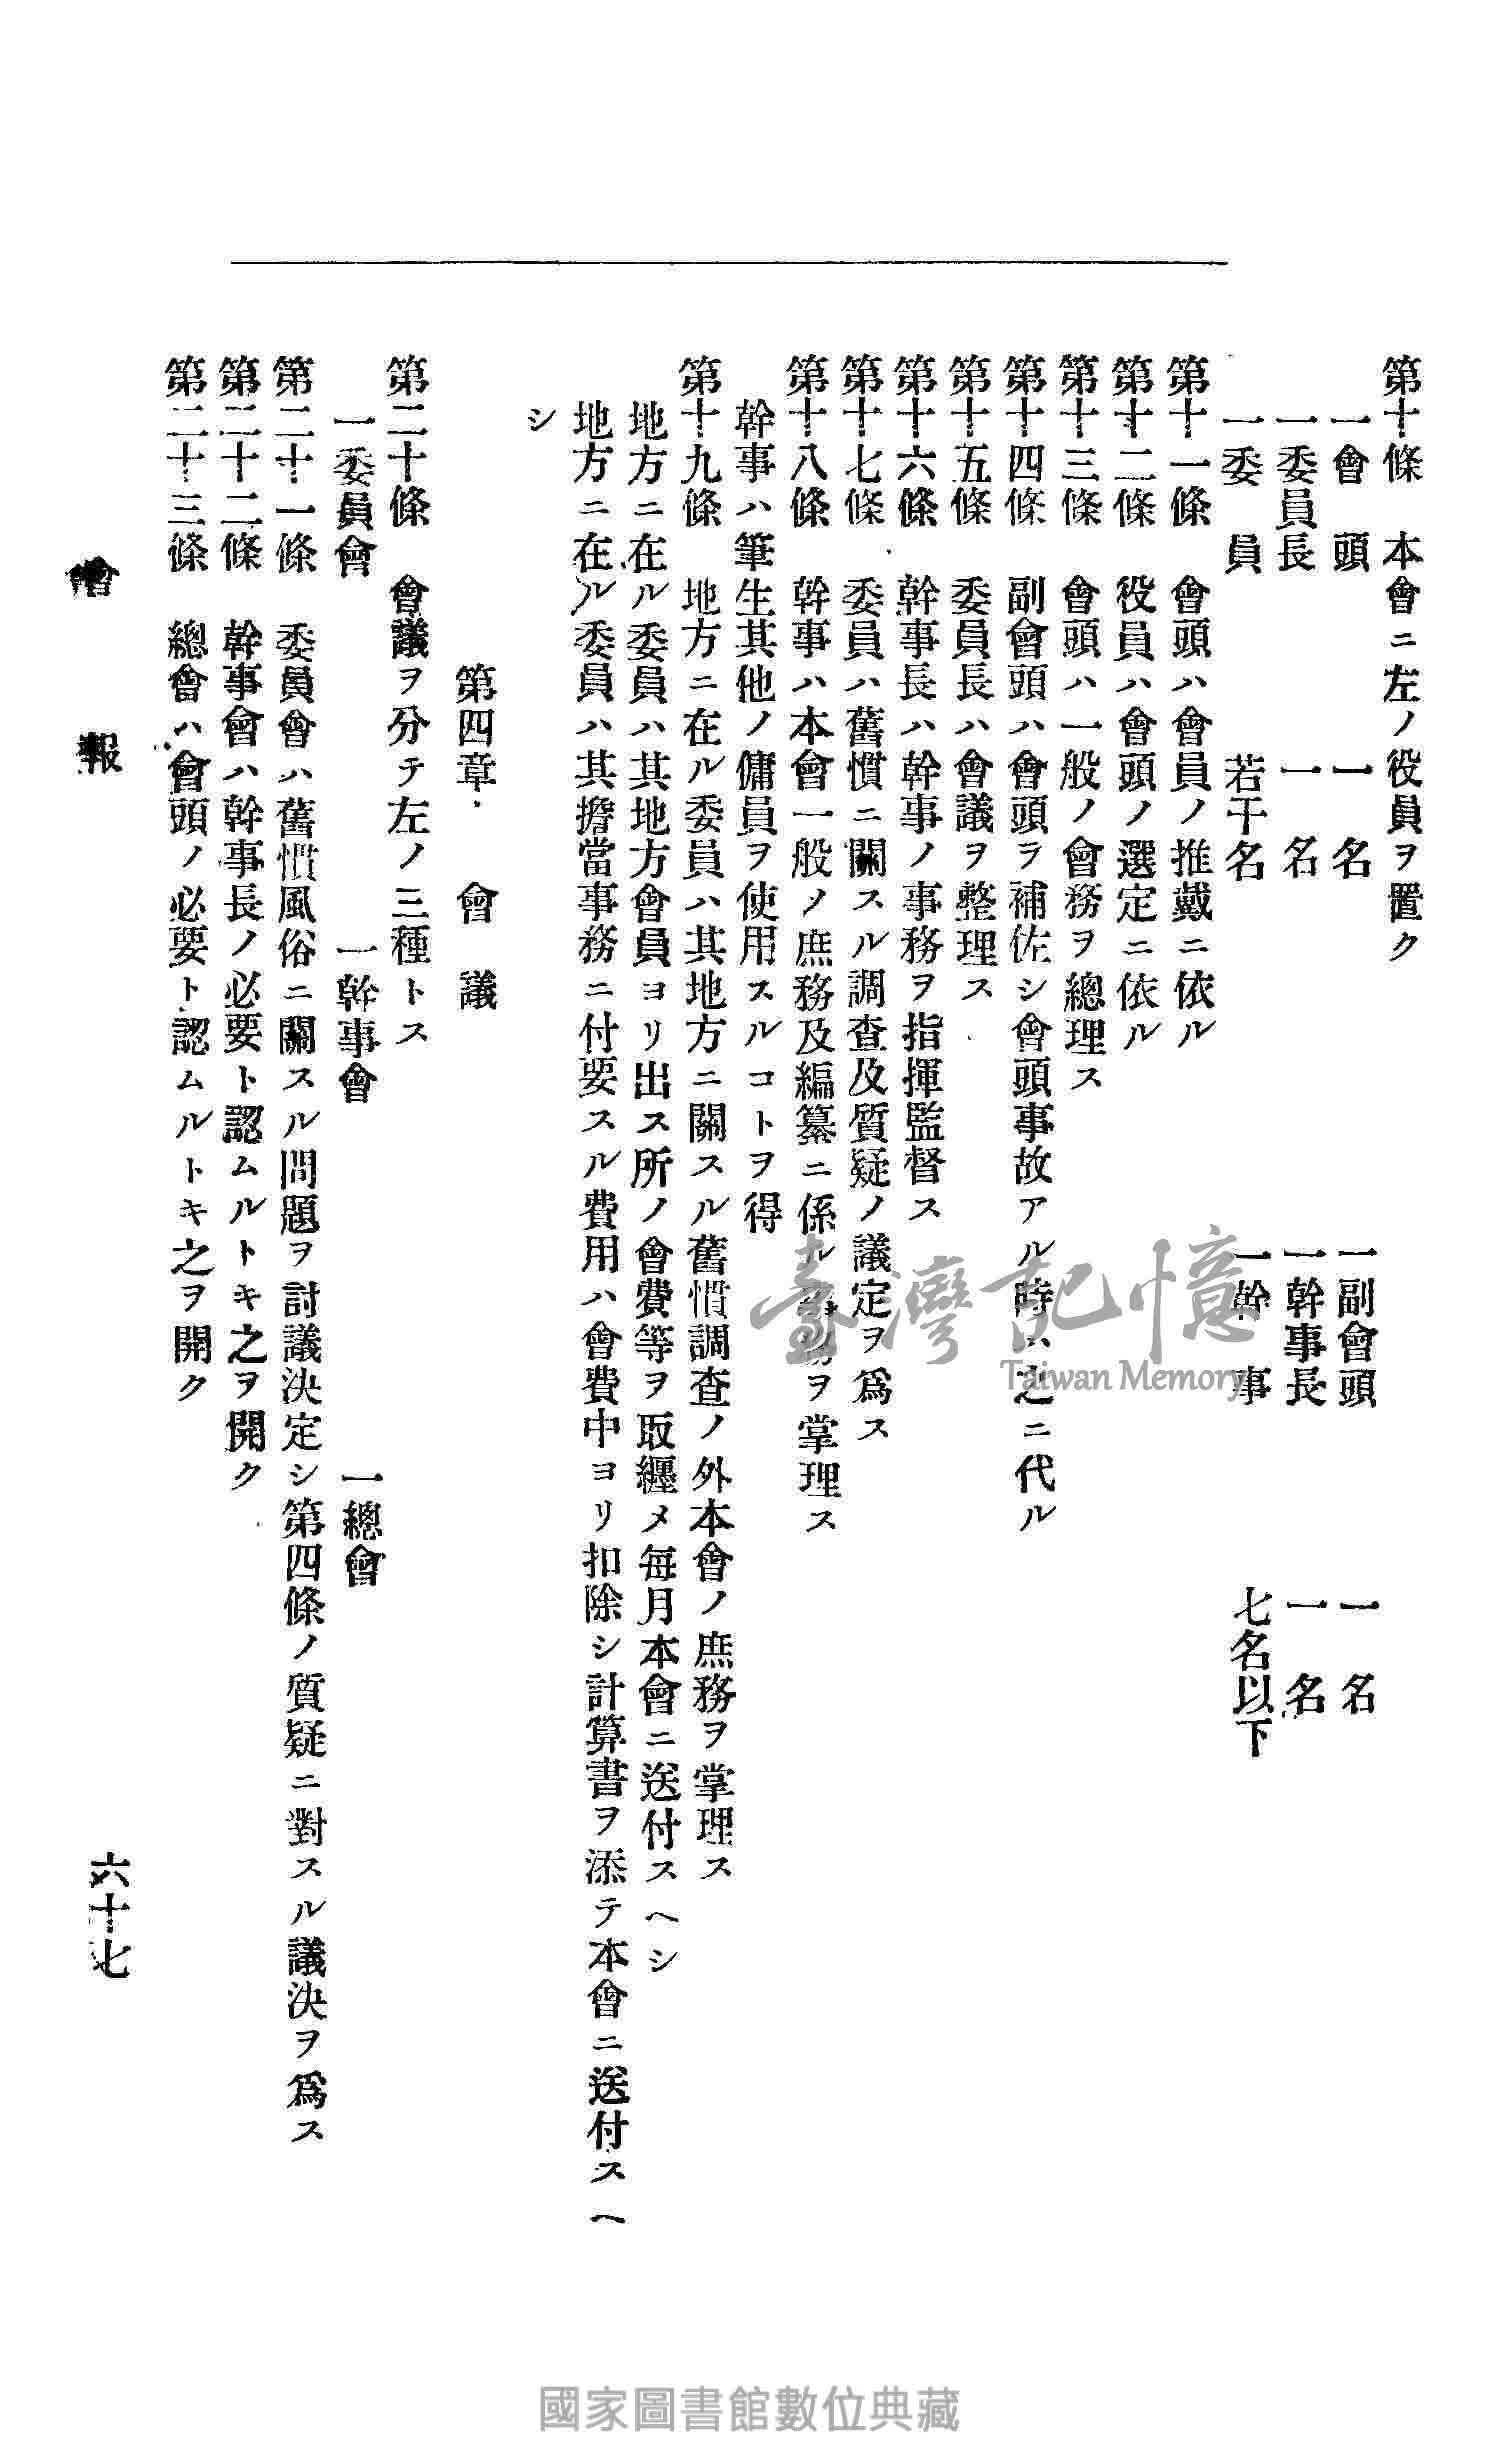 第十條　本會ニ左ノ役員ヲ置ク
一會　頭　　　　一　名　　　　一副會頭　　　　一　名
一委員長　　　　一　名　　　　一幹事長　　　　一　名
一委　員　　　　若干名　　　　一幹　事　　　　七名以下
第十一條　會頭ハ會員ノ推戴ニ依ル
第十二條　役員ハ會頭ノ選定ニ依ル
第十三條　會頭ハ一般ノ會務ヲ總理ス
第十四條　副會頭ハ會頭ヲ補佐シ會頭事故アル時ハ之ニ代ル
第十五條　委員長ハ會議ヲ整理ス
第十六條　幹事長ハ幹事ノ事務ヲ指揮監督ス
第十七條　委員ハ舊慣ニ關スル調査及質疑ノ議定ヲ爲ス
第十八條　幹事ハ本會一般ノ庶務及編纂ニ係ル事務ヲ掌理ス
幹事ハ筆生其他ノ傭員ヲ使用スルコトヲ得
第十九條　地方ニ在ル委員ハ其地方ニ關スル舊慣調査ノ外本會ノ庶務ヲ掌理ス
地方ニ在ル委員ハ其地方會員ヨリ出ス所ノ會費等ヲ取纒メ每月本會ニ送付スヘシ
地方ニ在ル委員ハ其擔當事務ニ付要スル費用ハ會費中ヨリ扣除シ計算書ヲ添テ本會ニ送付スヘ
シ
第四章　會　議
第二十條　會議ヲ分テ左ノ三種トス
一委員會　　　　一幹事會　　　　一總會
第二十一條　委員會ハ舊慣風俗ニ關スル問題ヲ討議決定シ第四條ノ質疑ニ對スル議決ヲ爲ス
第二十二條　幹事會ハ幹事長ノ必要ト認ムルトキ之ヲ開ク
第二十三條　總會ハ會頭ノ必要ト認ムルトキ之ヲ開ク
會　報
六十七
臺灣記憶
Taiwan Memory
國家圖書館數位典藏